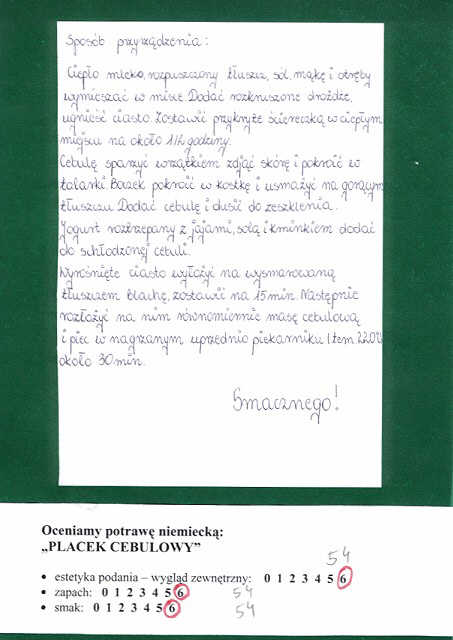 Sposób przyrządzenia:
Ciepło mleko, rozpuszczony tłuszcz, sól, mąkę i otręby
wymieszać w misce. Dodać rozkruszone drożdże,
ugnieść ciasto. Zostawić przykryte ściereczką w ciepłym
miejscu na około 1/2 godziny.
Cebulę sparzyć wrzątkiem zdjąć skórę i pokroić w
talarki. Boczek pokroić w kostkę i usmażyć na gorącym
tłuszczu. Dodać cebulę i dusić do zeszklenia.
Jogurt roztrzepany z jajami, solą i kminkiem dodać
do schłodzonej cebuli.
Wyrośnięte ciasto wyłożyć na wysmarowaną
tłuszczem blachę, zostawić na 15 min. Następnie
rozłożyć na nim równomiernie masę cebulową
i piec w nagrzanym uprzednio piekarniku (tem 220%
około 30 min.
Smacznego!
Oceniamy potrawę niemiecką:
„PLACEK CEBULOWY”
54
• estetyka podania – wygląd zewnętrzny: 0 1 2 3 4 5 6
• zapach: 0 1 2 3 4 5 6 54
• smak: 0 1 2 3 4 5 6 54